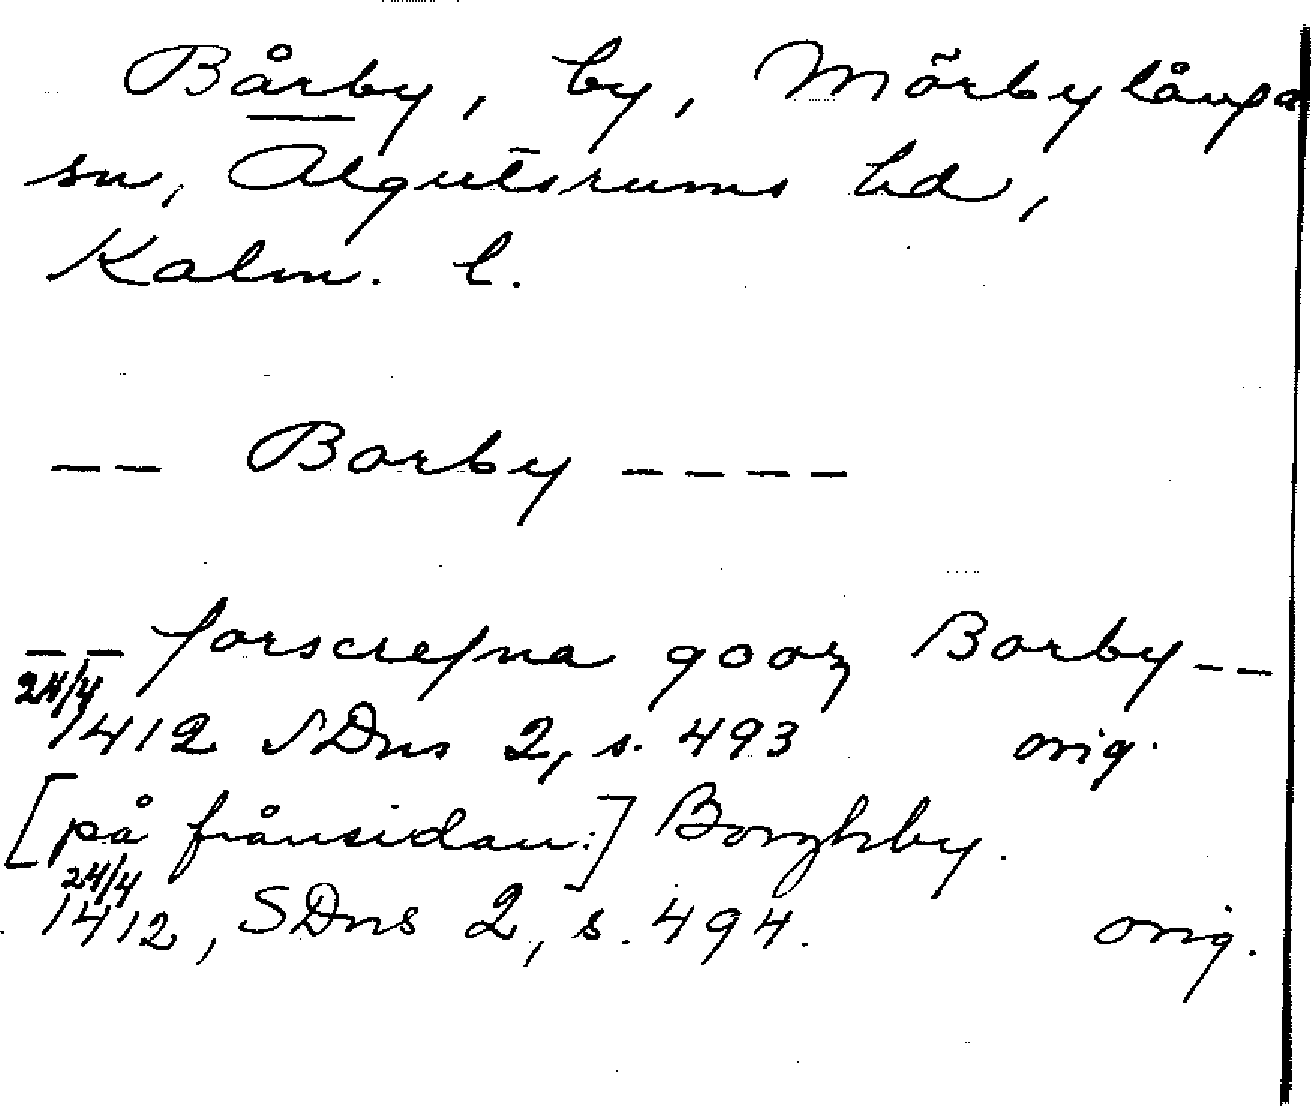 Bårby, by, Mörbylånga
sn, Algutsrums hd,
Kalm. l.
-- Borby ----
-- forscrefna gooz Borby --
24/4
1412 SDns 2, s. 493 orig.
[på frånsidan:] Borghby.
24/4
1412, SDns 2, s. 494. orig.